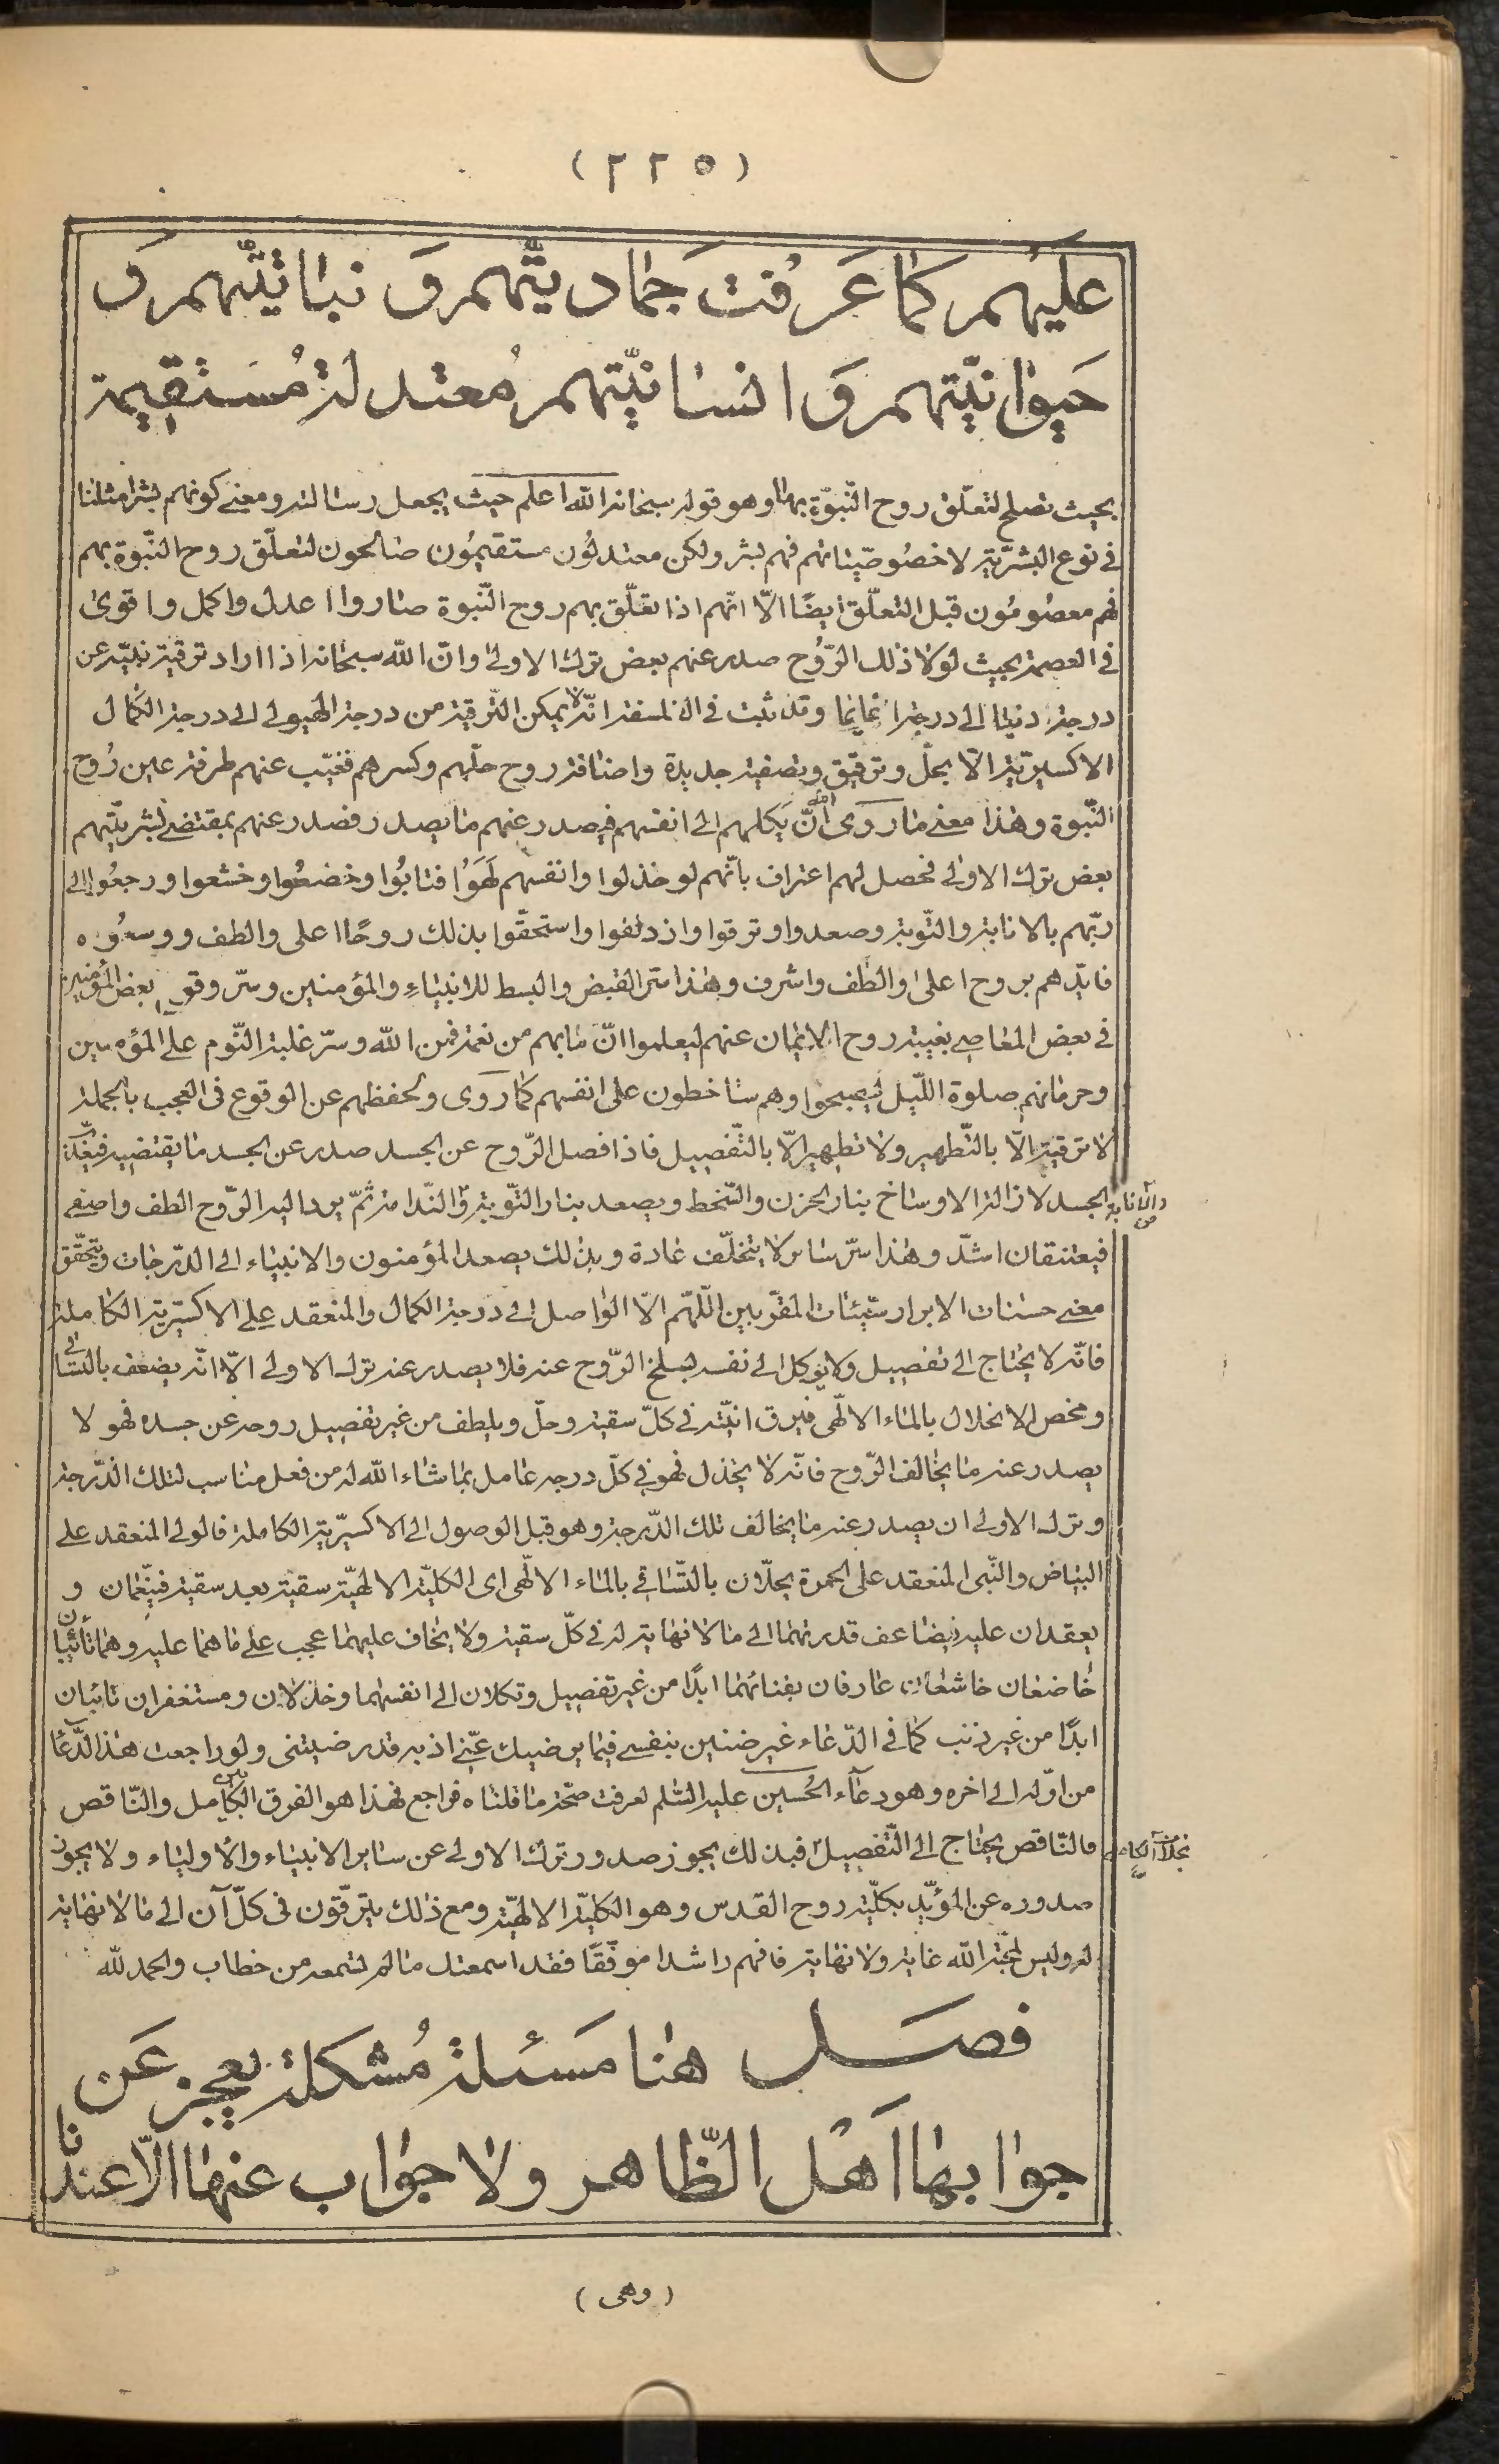 (٢٢٥)
عليهم كما عَرفت جماديّتهم وَ نباتيّتهم وَ
حَيوانيّتهم وَ انسانيّتهم مُعتدلة مُستقيمة
بحيث تصلح لتعلّق روح النّبوّة بها وهو قوله سبحانه الله اعلم حيث يجعل رسالته ومعنى كونهم بشرا مثلنا
فى نوع البشريّة لا خصُوصيّاتهم فهم بشر ولكن معتدلُون مستقيمُون صالحون لتعلّق روح النّبوة بهم
فهم معصُومُون قبل التعلّق ايضًا الّا انّهم اذا تعلّق بهم روح النّبوة صاروا اعدل واكمل واقوى
فى العصمة بحيث لولا ذلك الرّوُح صدر عنهم بعض ترك الاولى وانّ الله سبحانه اذا اراد ترقية نبيّه عن
درجة دنيا الى درجة وقد ثبت فى الفلسفة انّه لا يمكن التّرقية من درجة الهيولى الى درجة الكمال
الاكسيريّة الّا بحلّ وترقيق وتصفية جديدة واضافة روح حلّهم وكسرهم فغيّب عنهم طرفة عين رُوح
النّبوة وهذا معنى ما روى انّ الله يَكلهم الى انفسهم فيصدر عنهم ما يصدر فصدر عنهم بمقتضى بشريّتهم
بعض ترك الاولى فحصل لهم اعتراف بانّهم لو خذلوا وانفسهم لهَوَوُا فتابُوا وخضعُوا وخشعوا ورجعُوا الى
ربّهم بالانابة والتّوبة وصعدوا وترقوا وازدلفوا واستحقّوا بذلك روحًا اعلى والطف
فايّدهم بروح اعلى والطف واشرف وهذا سرّ القبض والبسط للانبياءِ والمؤمنين وسرّ وقوع بعض المؤمنين
فى بعض المعاصى بغيبة روح الايمان عنهم ليعلموا انّ ما بهم من نعمة فمن الله وسرّ غلبة النّوم على المؤمنين
وحرمانهم صلوة اللّيل ليصبحوا وهم ساخطون على انفسهم كما روى ولحفظهم عن الوقوع فى العجب بالجملة
لا ترقية الّا بالتّطهير ولا تطهير الّا بالتّفصيل فاذا فصل الرّوح عن الجسد صدر عن الجسد ما يقتضيه
والانابة
الجسد لازالة الاوساخ بنار الحزن والسّخط ويصعد بنار التّوبة والنّدامة ثمّ يرد اليه الرّوح الطف واصفى
فيعتنقان اشدّ وهذا سرّ سائر لا يتخلّف عادة وبذلك يصعد المؤمنون والانبياء الى الدّرجات ويتحقّق
معنى حسنات الابرار سيّئات المقرّبين اللّهم الّا الواصل الى درجة الكمال والمنعقد على الاكسيريّة الكاملة
فانّه لا يحتاج الى تفصيل ولا يوكل الى نفسه ليسلخ الرّوح عنه فلا يصدر عنه ترك الاولى الّا انّه يضعف بالتّساقى
ومحض الانحلال بالماء الالهى فيرق انيّته فى كلّ سقية وحلّ ويلطف من غير تفصيل روحه عن جسده فهو لا
يصدر عنه ما يخالف الرّوح فانّه لا يخذل فهو فى كلّ درجه عامل بما شاء الله له من فعل مناسب لتلك الدّرجة
وترك الاولى ان يصدر عنه ما يخالف تلك الدّرجة وهو قبل الوصول الى الاكسيريّة الكاملة فالولى المنعقد على
البياض والنّبى المنعقد على الحمرة يحلّان بالتّساقى بالماء الالهى اى الكليّة الالهيّة سقية بعد سقية فينعّمان و
يعقدان عليه فيضاعف قدرتهما الى ما لا نهاية له فى كلّ سقية ولا يخاف عليهما عجب على ما هما عليه وهما تائبان
خاضعان خاشعان عارفان بفنائهما ابدًا من غير تفصيل وتكلان الى انفسهما وخذلان ومستغفران تائبان
ابدًا من غير ذنب كما فى الدّعاء غير ضنين بنفسى فيما يرضيك عنّى اذ به قد رضيتنى ولو راجعت هذا الدّعا
من اوّله الى اخره وهو دعآء الحُسين عليه السّلم لعرفت صحّة ما قلناه فراجع فهذا هو الفرق بين الكامل والنّاقص
فالنّاقص يحتاج الى التّفصيل بخلاف الكامل فبذلك يجوز صدور ترك الاولى عن ساير الانبياء والاولياء ولا يجوز
صدوره عن المؤيّد بكلّية روح القدس وهو الكليّة الالهيّة ومع ذلك يترقّون فى كلّ آن الى ما لا نهاية
له وليس لمحبّة الله غاية ولا نهاية فافهم راشدا موفّقا فقد اسمعتك ما لم تسمعه من خطاب والحمد لله
فصَل هنا مَسئلة مُشكلة يعجز عَن
جوابها اَهْل الظّاهر ولا جواب عنها الّا عندنا
(وهى)